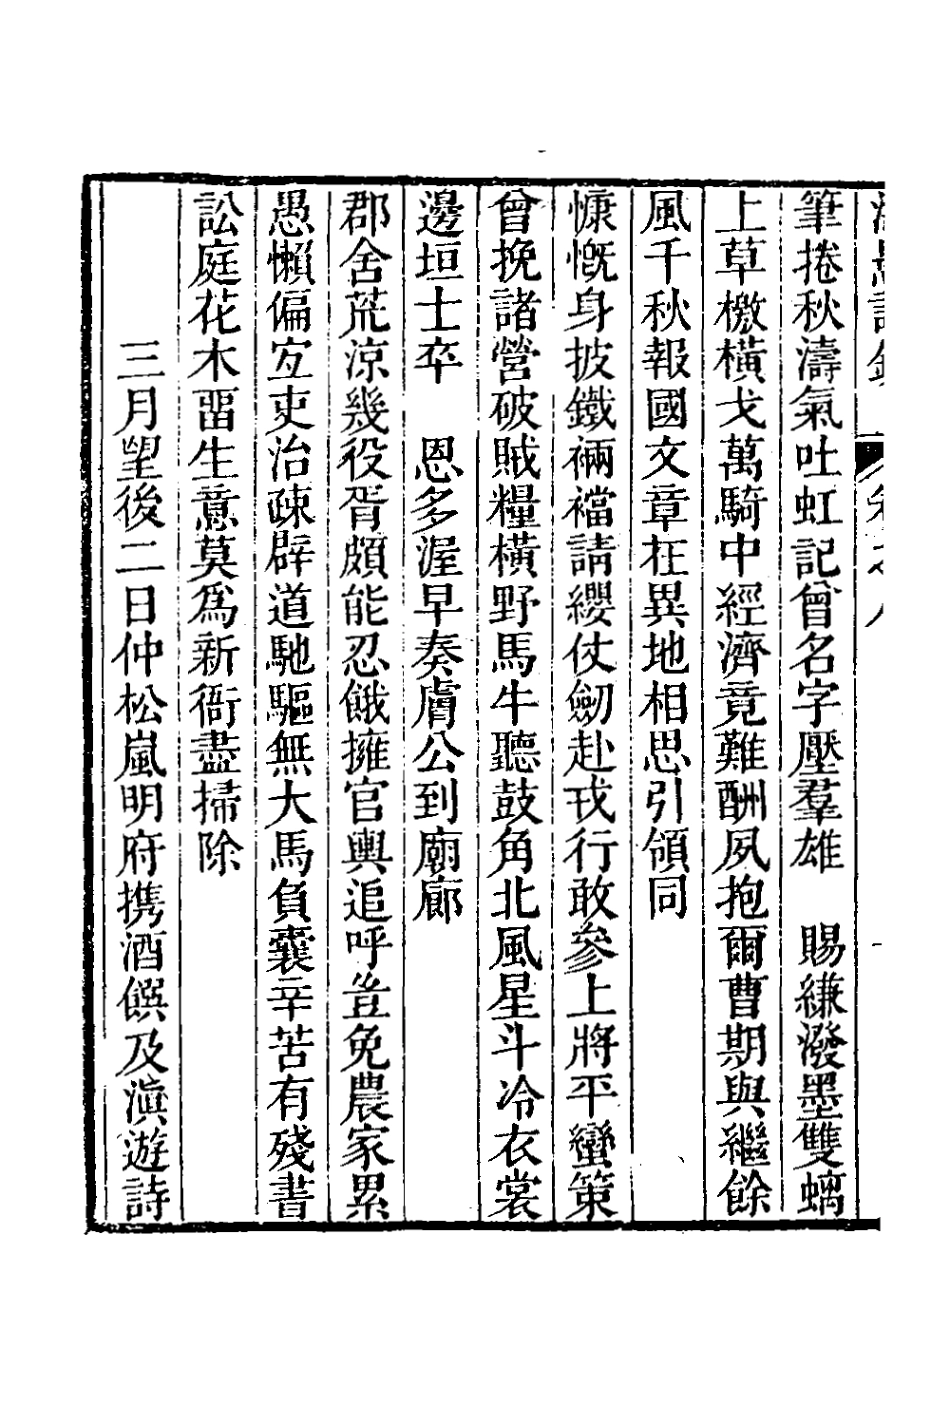 筆捲秋濤氣吐虹記曾名字壓羣雄　賜縑潑墨雙螭
上草檄橫戈萬騎中經濟竟難酬夙抱爾曹期與繼餘
風千秋報國文章在異地相思引領同
慷慨身披鐵裲襠請纓仗劒赴戎行敢參上將平蠻策
曾挽諸營破賊糧橫野馬牛聽鼓角北風星斗冷衣裳
邊垣士卒　恩多渥早奏膚公到廟廊
郡舍荒涼幾役胥頗能忍餓擁官輿追呼豈免農家累
愚懶偏宐吏治疎辟道馳驅無大馬負囊辛苦有殘書
訟庭花木畱生意莫爲新衙盡掃除
三月望後二日仲松嵐明府携酒饌及滇遊詩